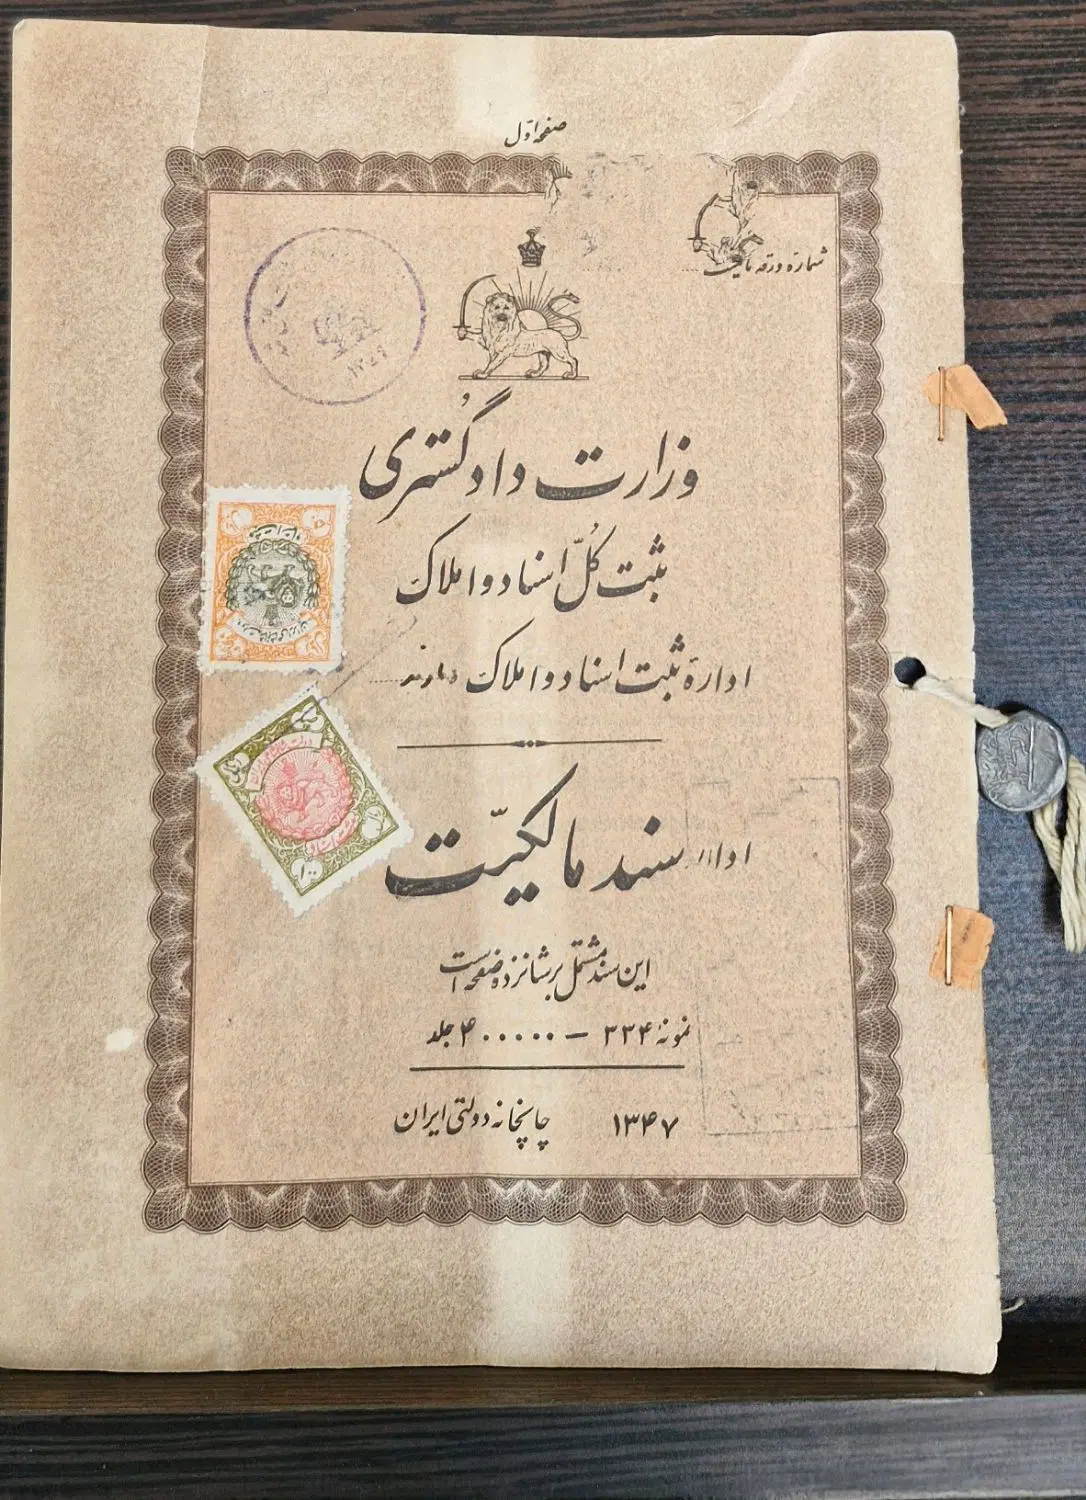 صفحه اوّل
شماره ورقه مالکیت
وزارت دادگُستری
ثبت کُلّ اسناد و املاک
ادارۀ ثبت اسناد و املاک
سند مالکیّت
این سند مشتمل بر شانزده صفحه است
نمونۀ ۲۳۴ — ۴۰۰۰۰۰ جلد
۱۳۴۷ چاپخانه دولتی ایران
۱۰۰